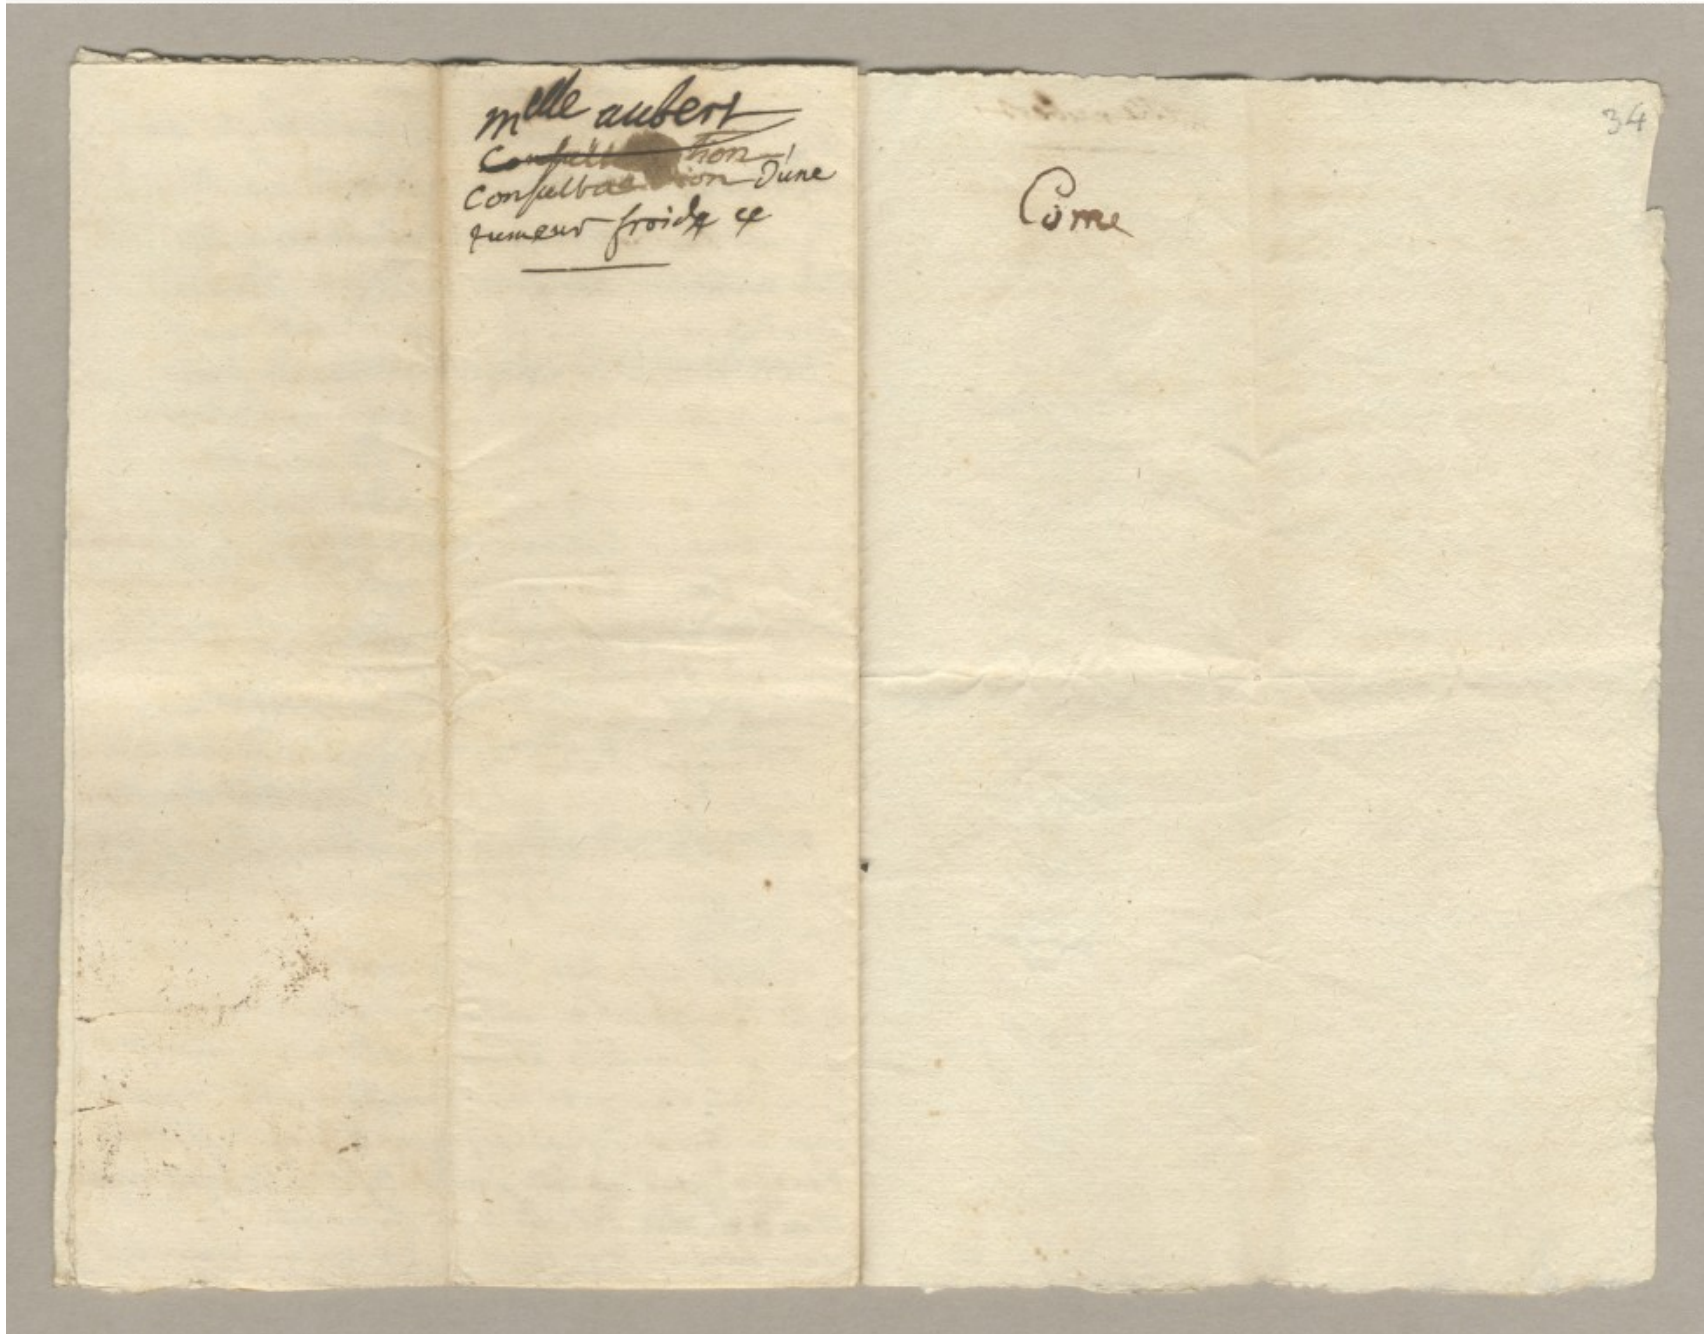 melle aubert
Consultation
Consultation D'une
tumeur froide
34
Come